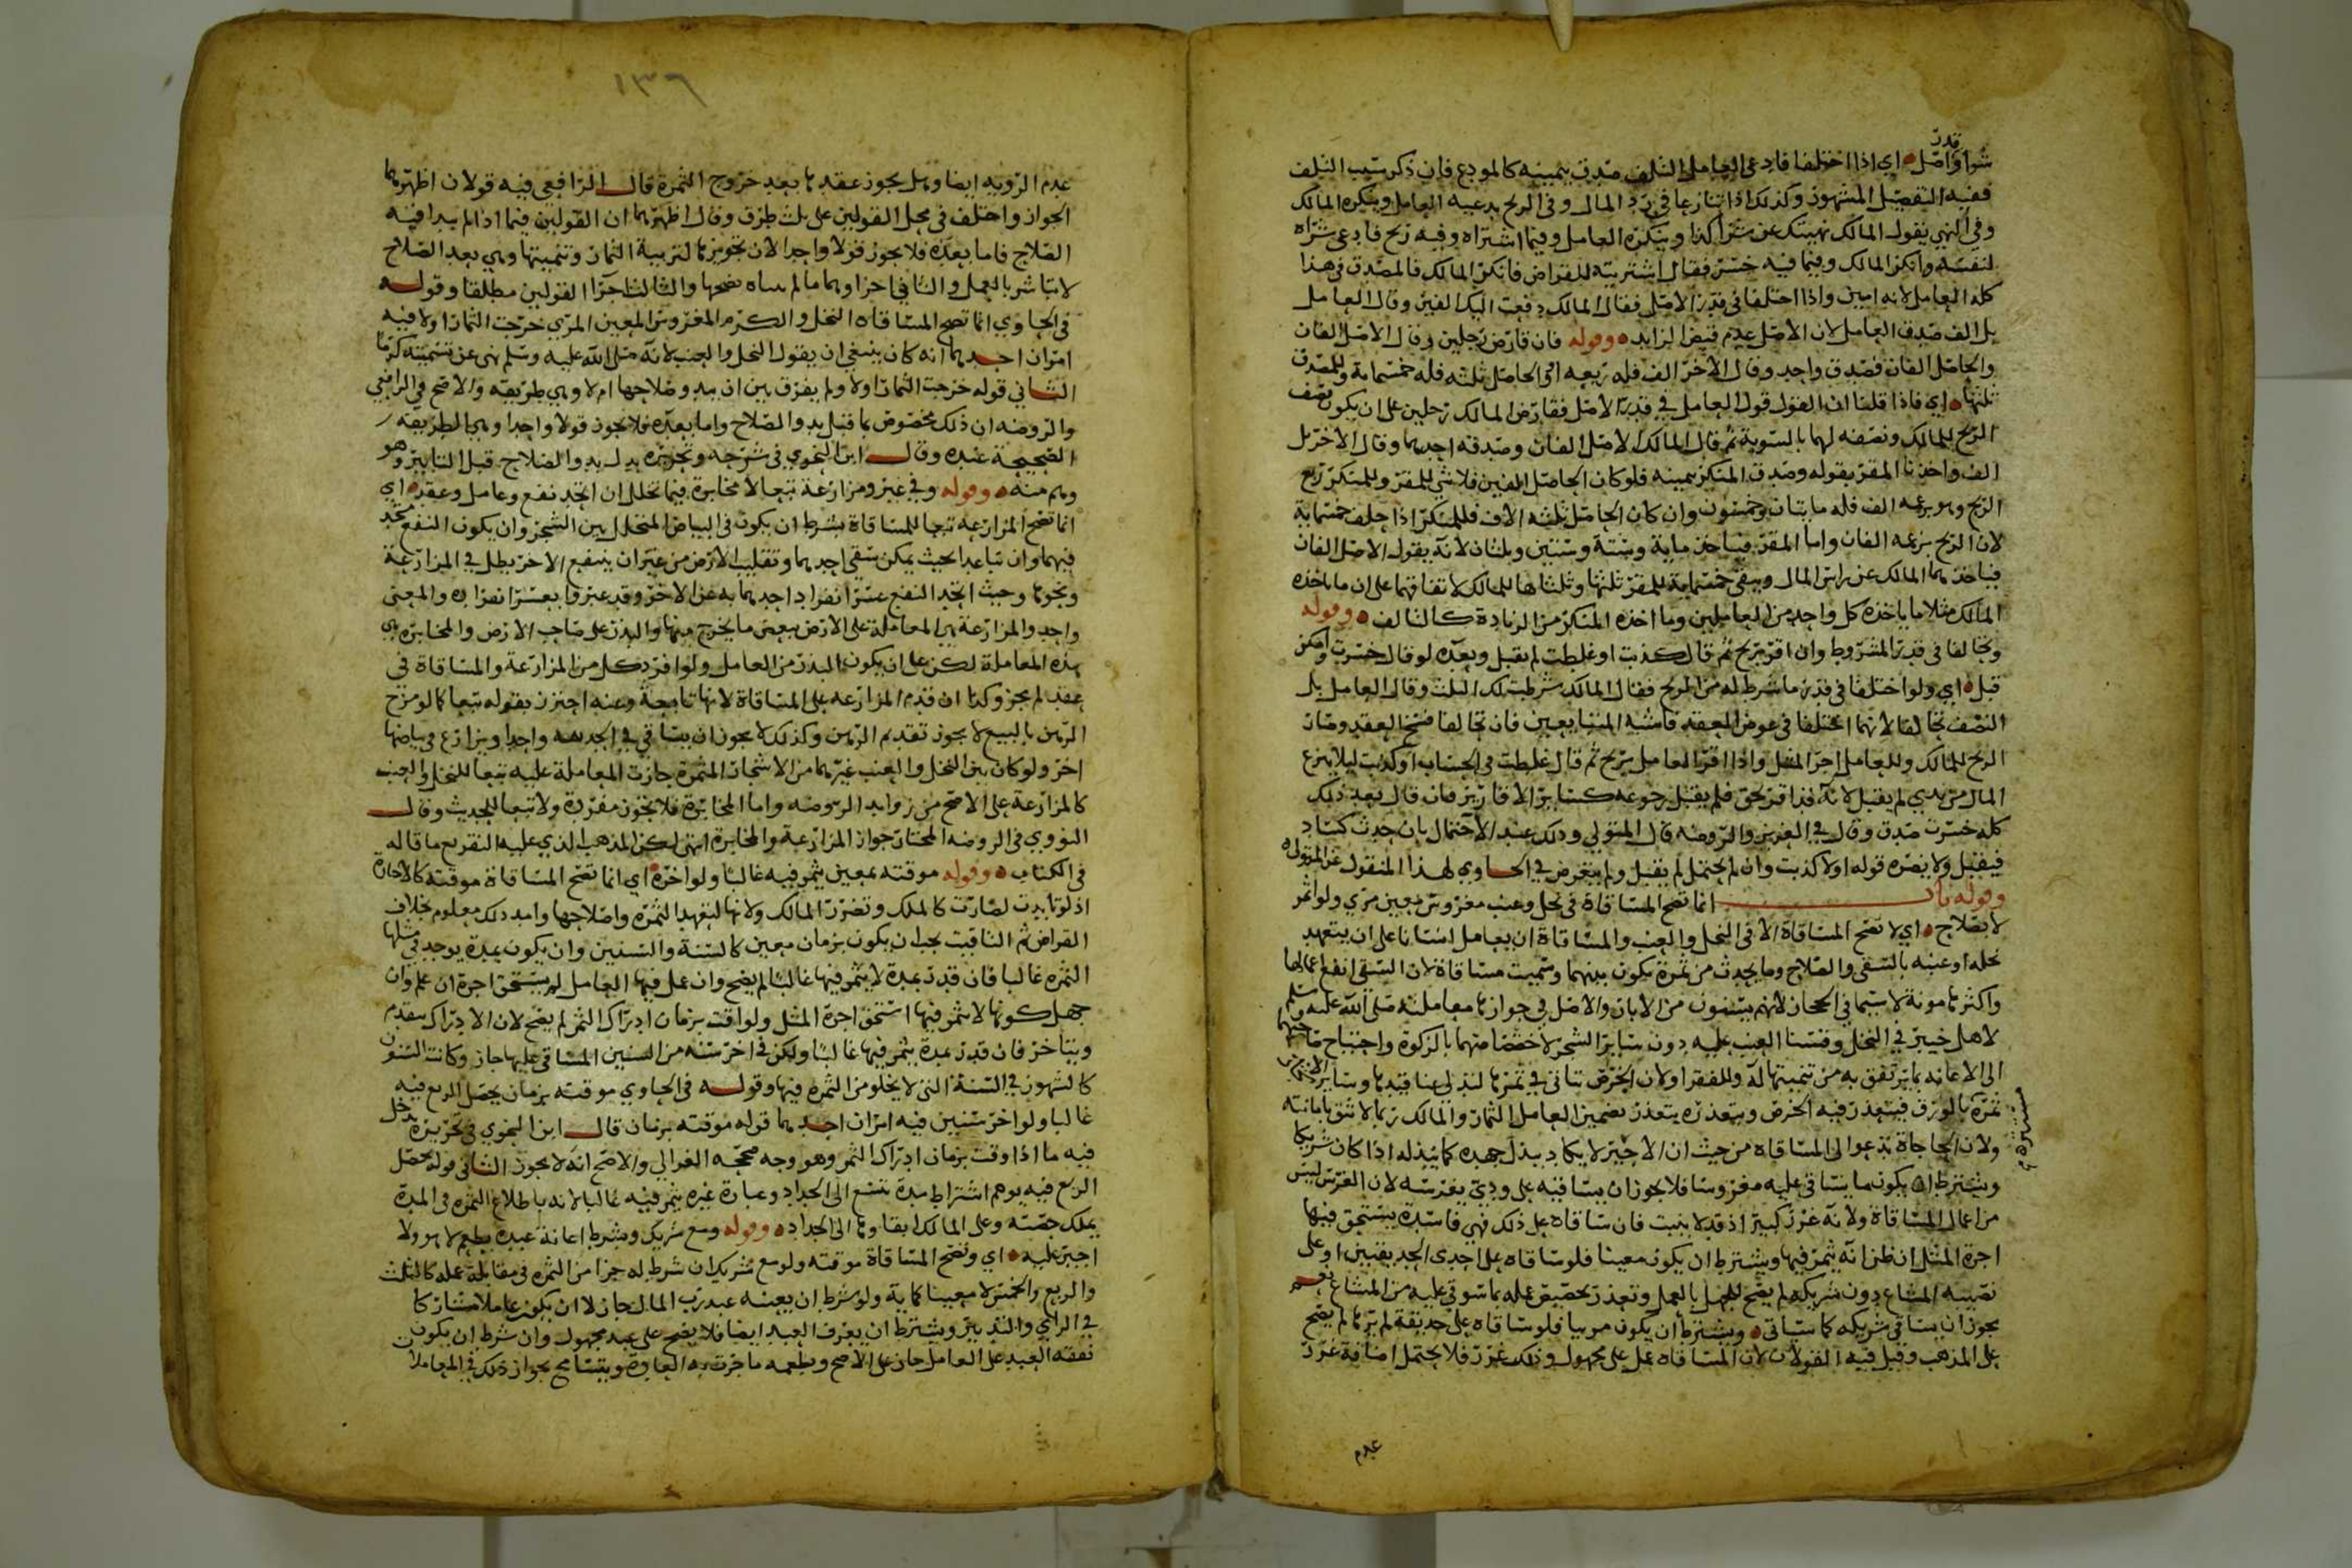 قدر
شرا واصل ای اذا اختلفا فادعی العامل التلف صدق بیمینه کالمودع فان ذکر سبب التلف
ففیه التفصیل المشهور وکذلک اذا تنازعا فی رد المال وفی الربح یدعیه العامل وینکره المالک
وفی النهی یقول المالک نهیتک عن شرا کذا وینکره العامل وفیما اشتراه وفیه ربح فادعی شراه
لنفسه وانکر المالک وفیما فیه خسر فقال اشتریته للقراض فانکر المالک فالمصدق فی هذا
کله العامل لانه امین واذا اختلفا فی قدر الاصل فقال المالک دفعت الیک الفین وقال العامل
بل الف صدق العامل لان الاصل عدم قبض الزاید وقوله فان قارض رجلین وقال الاصل الفان
والحاصل الفان فصدق واحد وقال الآخر الف فله ربعه او الحاصل ثلثه فله خمسمایة وللمصدق
ثلثها ای فاذا قلنا ان القول قول العامل فی قدر الاصل فقارض المالک رجلین علی ان یکون نصف
الربح للمالک ونصفه لهما بالسویة ثم قال المالک الاصل الفان وصدقه احدهما وقال الاخر بل
الف واخذنا المقر بقوله وصدق المنکر بیمینه فلو کان الحاصل الفین فلا شی للمقر وللمنکر ربع
الربح وهو بزعمه الف فله مایتان وخمسون وان کان الحاصل ثلثه الاف فللمنکر اذا حلف خمسمایة
لان الربح بزعمه الفان واما المقر فیاخذ مایة وستة وستین وثلثان لانه یقول الاصل الفان
فیاخذهما المالک عن راس المال ویبقی خمسمایة للمقر ثلثها وثلثاها للمالک لاتفاقهما علی ان ما یاخذه
المالک مثلا ما یاخذه کل واحد من العاملین وما اخذه المنکر من الزیادة کالتالف وقوله
وتحالفا فی قدر المشروط وان اقر بربح ثم قال کذبت او غلطت لم یقبل وبعده لو قال خسرت وامکن
قبل ای ولو اختلفا فی قدر ما شرط له من الربح فقال المالک شرطت لک الثلث وقال العامل بل
النصف تحالفا لانهما اختلفا فی عوض العقد فاشبه المتبایعین فان تحالفا فسخ العقد وصار
الربح للمالک وللعامل اجر المثل واذا اقر العامل بربح ثم قال غلطت فی الحساب او کذبت لیلا ینزع
المال من یدی لم یقبل لانه قد اقر بحق فلم یقبل رجوعه کسایر الاقاریر فان قال بعد ذلک
کله خسرت صدق وقال فی العزیز والروضه قال المتولی وذلک عند الاحتمال بان حدث کساد
فیقبل ولا یضره قوله اولا کذبت وان لم یحتمل لم یقبل ولم یتعرض فی الحاوی لهذا المنقول عن المتولی
وقوله باب انما تصح المساقاة فی نخل وعنب مغروس معین مری ولو اثمر
لا بصلاح ای لا تصح المساقاة الا فی النخل والعنب والمساقاة ان یعامل انسانا علی ان یتعهد
نخله او عنبه بالسقی والصلاح وما یحدث من ثمرة یکون بینهما وسمیت مساقاة لان السقی انفع اعمالها
واکثرها مونة لا سیما فی الحجاز لانهم یسقون من الابار والاصل فی جوازها معاملته صلی الله علیه وسلم
لاهل خیبر فی النخل وقسنا العنب علیه دون سایر الشجر لاختصاصهما بالزکوة واحتیاج
الی الاعانه بما یرتفق به من تنمیتها له وللفقرا ولان الخرص یتاتی فی ثمرها لتدلی عناقیدها وسایر
ثمره بالورق فیتعذر فیه الخرص وبتعذره یتعذر تضمین العامل الثمار والمالک ربما لا یثق بامانته
ولان الحاجاة تدعوا الی المساقاه من حیث ان الاجیر لا یکاد یبذل جهده کما یبذله اذا کان شریکا
ویشترط ان یکون ما یساقی علیه مغروسا فلا یجوز ان یساقیه علی ودی یغرسه لان الغرس لیس
من اعمال المساقاة ولانه غرر کبیر اذ قد لا ینبت فان ساقاه علی ذلک فهی فاسدة یستحق فیها
اجرة المثل ان ظن انه یثمر فیها ویشترط ان یکون معینا فلو ساقاه علی احدی الحدیقتین او علی
نصیبه المشاع دون شریکه لم یصح للجهل بالعمل وتعذر تخصیص عمله بما سوقی علیه من المشاع نعم
یجوز ان یساقی شریکه کما سیاتی ویشترط ان یکون مریا فلو ساقاه علی حدیقة لم یرها لم یصح
علی المذهب وقیل فیه القولان لان المساقاه عمل علی مجهول وذلک غرر فلا یحتمل اضافة غرر
عدم
١٣٦
عدم الرویه ایضا وهل یجوز عقدها بعد خروج الثمرة قال الرافعی فیه قولان اظهرهما
الجواز واختلف فی محل القولین علی ثلث طرق وقال اظهرهما ان القولین فیما اذا لم یبدا فیه
الصلاح فاما بعده فلا یجوز قولا واحدا لان تجویزها لتربیة الثمار وتنمیتها وهی بعد الصلاح
لا یتاثر بالعمل والثانی اجزاوهما ما لم یتناه نضجها والثالث اجرا القولین مطلقا وقوله
فی الحاوی انما تصح المساقاه النخل والکرم المغروس المعین المری خرجت الثمار اولا فیه
امران احدهما انه کان ینبغی ان یقول النخل والعنب لانه صلی الله علیه وسلم نهی عن تسمیته کرما
الثانی قوله خرجت الثمار اولا ولم یفرق بین ان یبدو صلاحها ام لا وهی طریقه والاصح فی الرافعی
والروضه ان ذلک مخصوص بما قبل بدو الصلاح واما بعده فلا یجوز قولا واحدا وهی الطریقه
الصحیحة عنده وقال ابن النحوی فی شرحه وتحریره بدل بدو الصلاح قبل التابیر وهو
وهم منه وقوله وفی غیر ومزارعة تبعا لا مخابرة فیما تخلل ان اتحد نفع وعامل وعقد ای
انما تصح المزارعه تبعا للمساقاة بشرط ان یکون فی البیاض المتخلل بین الشجر وان یکون النفع متحد
فیهما وان تباعدا بحیث یمکن سقی احدهما وتقلیب الارض من غیر ان ینتفع الاخر بطل فی المزارعة
ونحوها وحیث اتحد النفع عسر انفراد احدهما به عن الاخر وقد عبر قا بعسر انفراده والمعنی
واحد والمزارعة هی المعاملة علی الارض ببعض ما یخرج منها والبذر علی صاحب الارض والمخابره هی
هذه المعاملة لکن علی ان یکون البذر من العامل ولو افرد کل من المزارعة والمساقاة فی
عقد لم یجز وکذا ان قدم المزارعه علی المساقاة لانها تابعة وعنه احترز بقوله تبعا کما لو مزج
الرهن بالبیع لا یجوز تقدیم الرهن وکذلک لا یجوز ان یساقی فی الحدیقه واحدا ویزارع فی بیاضها
اخر ولو کان بین النخل والعنب غیرهما من الاشجار المثمرة جازت المعاملة علیه تبعا للنخل والعنب
کالمزارعة علی الاصح من زواید الروضه واما المخابرة فلا یجوز مفردة ولا تبعا للحدیث وقال
النووی فی الروضه المختار جواز المزارعة والمخابرة انتهی لکن المذهب الذی علیه التفریع ما قاله
فی الکتاب وقوله موقته بمعین یثمر فیه غالبا ولو اخره ای انما تصح المساقاة موقته کالاجاره
اذ لو تابدت لصارت کالملک وتضرر المالک ولانها لتعهد الثمره واصلاحها وامد ذلک معلوم بخلاف
القراض ثم التاقیت یجب ان یکون بزمان معین کالسنة والسنین وان یکون بمدة یوجد فی مثلها
الثمره غالبا فان قدر بمدة لا یثمر فیها غالبا لم یصح وان عمل فیها العامل لم یستحق اجرة ان علم وان
جهل کونها لا یثمر فیها استحق اجرة المثل ولو اقت بزمان ادراک الثمر لم یصح لان الادراک یتقدم
ویتاخر فان قدر بمدة یثمر فیها غالبا ولکن فی اخر سنه من السنین المساقی علیها جاز وکانت السنون
کالشهور فی السنة التی لا یخلو من الثمره فیها وقوله فی الحاوی موقته بزمان یحصل الریع فیه
غالبا ولو اخر سنین فیه امران احدهما قوله موقته بزمان قال ابن النحوی فی تحریره یدخل
فیه ما اذا وقت بزمان ادراک الثمر وهو وجه صححه الغزالی والاصح انه لا یجوز الثانی قوله یحصل
الریع فیه یوهم اشتراط مدة تتسع الی الجداد وعبارة غیره یثمر فیه غالبا لانه باطلاع الثمره فی المدة
یملک حصته وعلی المالک ابقاوها الی الجداد وقوله ومع شریک وبشرط اعانة عبده یطعم لا هو ولا
اجیر علیه ای وتصح المساقاة موقته ولو مع شریک ان شرط له جزا من الثمره فی مقابلة عمله کالثلث
والربع والخمس لا معینا کمایة ولو شرط ان یعینه عبد رب المال جاز لا ان یکون عاملا مشارکا
فی الرای والتدبیر ویشترط ان یعرف العبد ایضا فلا یصح علی عبد مجهول وان شرط ان یکون
نفقه العبد علی العامل جاز علی الاصح ویطعمه ما جرت به العاده ویتسامح بجواز ذلک فی المعاملا